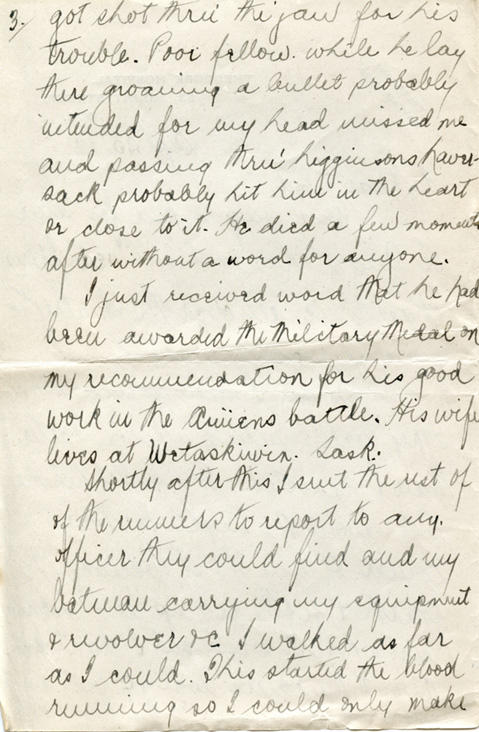 3. got shot thru' the jaw for his
trouble. Poor fellow. while he lay
there groaning a bullet probably
intended for my head missed me
and passing thru' Higginsons haver-
sack probably hit him in the heart
or close to it. He died a few moments
after without a word for anyone.
I just received word that he had
been awarded the Military Medal on
my recommendation for his good
work in the Amiens battle. His wife
lives at Wetaskiwin. Sask.
Shortly after this I sent the rest of
of the runners to report to any
officer they could find and my
batman carrying my equipment
& revolver &c I walked as far
as I could. This started the blood
running so I could only make